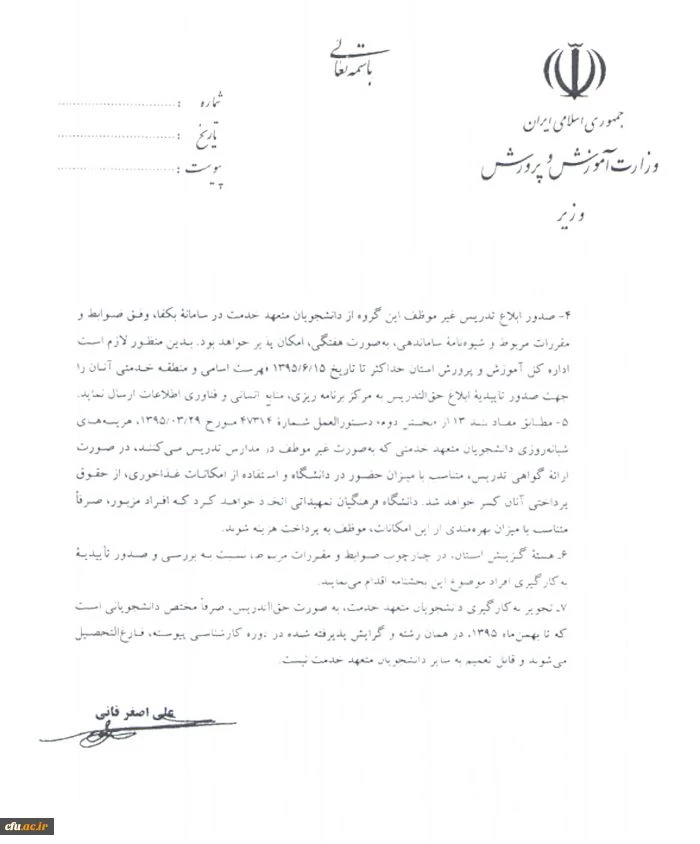 باسمه تعالی
جمهوری اسلامی ایران
وزارت آموزش و پرورش
وزیر
شماره :
تاریخ :
پیوست :
۴- صدور ابلاغ تدریس غیر موظف این گروه از دانشجویان متعهد خدمت در سامانهٔ بکفا، وفق ضوابط و
مقررات مربوط و شیوه‌نامهٔ ساماندهی، به‌صورت هفتگی، امکان پذیر خواهد بود. بدین منظور لازم است
اداره کل آموزش و پرورش استان حداکثر تا تاریخ ۱۳۹۵/۶/۱۵ فهرست اسامی و منطقه خدمتی آنان را
جهت صدور تاییدیهٔ ابلاغ حق‌التدریس به مرکز برنامه ریزی، منابع انسانی و فناوری اطلاعات ارسال نماید.
۵- مطابق مفاد بند ۱۳ از بخش دوم، دستورالعمل شمارهٔ ۴۷۳۱۴ مورخ ۱۳۹۵/۰۳/۲۹، هزینه‌های
شبانه‌روزی دانشجویان متعهد خدمتی که به‌صورت غیر موظف در مدارس تدریس می‌کنند، در صورت
ارائهٔ گواهی تدریس، متناسب با میزان حضور در دانشگاه و استفاده از امکانات غذاخوری، از حقوق
پرداختی آنان کسر خواهد شد. دانشگاه فرهنگیان تمهیداتی اتخاذ خواهد کرد که افراد مزبور، صرفاً
متناسب با میزان بهره‌مندی از این امکانات، موظف به پرداخت هزینه شوند.
۶- هستهٔ گزینش استان، در چارچوب ضوابط و مقررات مربوط، نسبت به بررسی و صدور تأییدیهٔ
به‌کارگیری افراد موضوع این بخشنامه اقدام می‌نمایند.
۷- تجویز به‌کارگیری دانشجویان متعهد خدمت، به صورت حق‌التدریس، صرفاً مختص دانشجویانی است
که تا بهمن‌ماه ۱۳۹۵، در همان رشته و گرایش پذیرفته شده در دوره کارشناسی پیوسته، فارغ‌التحصیل
می‌شوند و قابل تعمیم به سایر دانشجویان متعهد خدمت نیست.
علی اصغر فانی
cfu.ac.ir